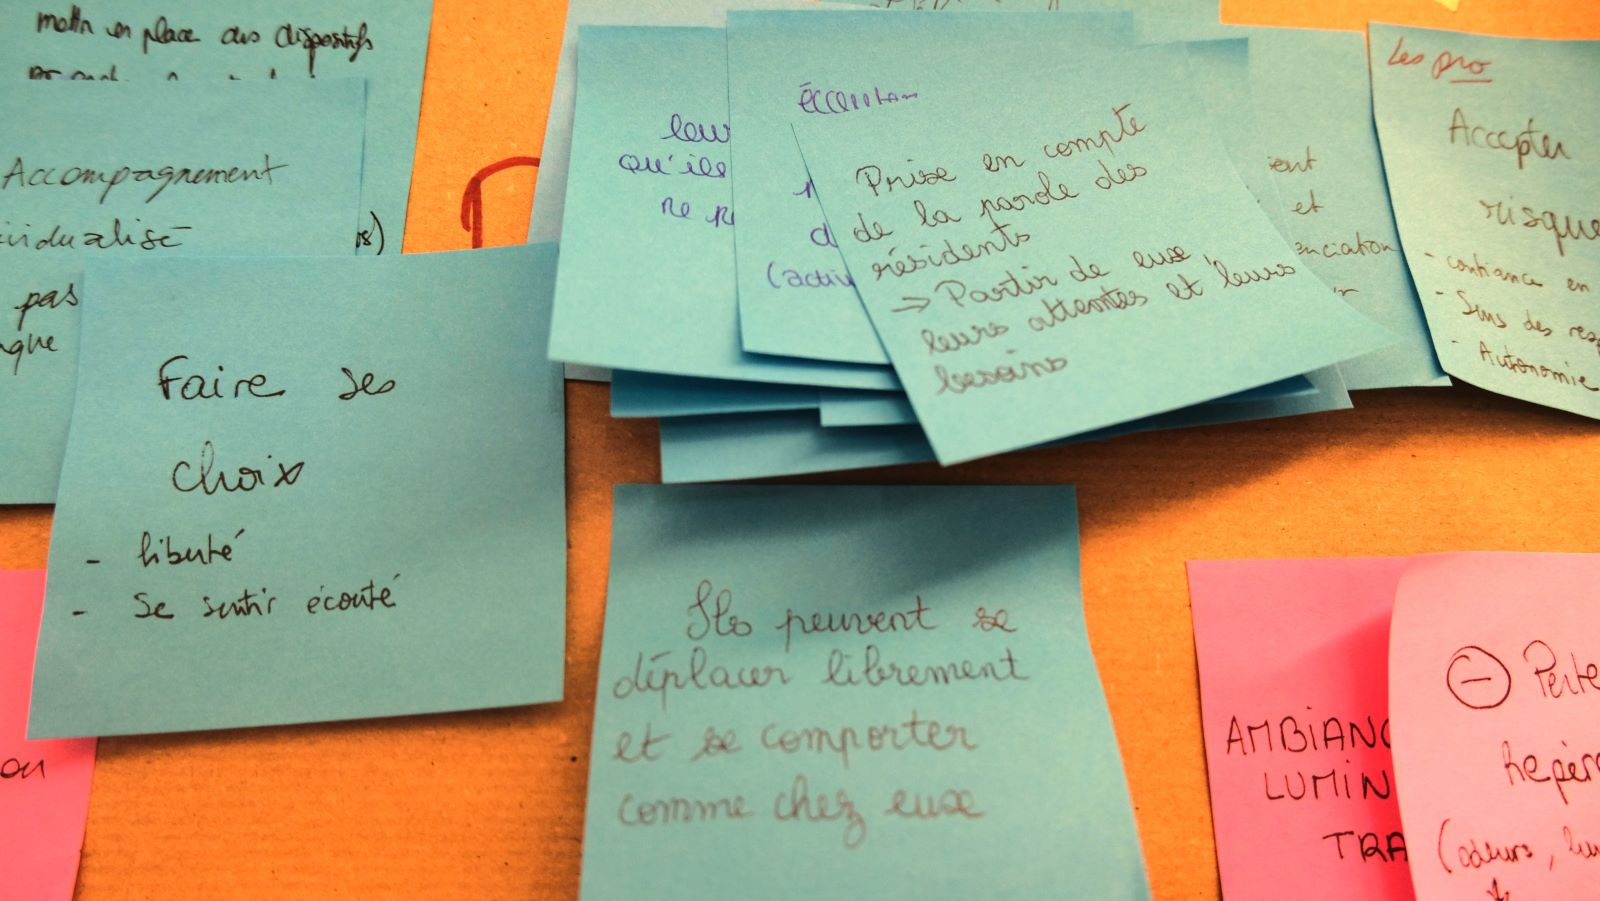 mettre en place des dispositifs
Accompagnement
pas
Faire ses
choix
- liberté
- se sentir écouté
leur
qu'ils
ne
Prise en compte
de la parole des
résidents
→ Partir de eux
leurs attentes et leurs
besoins
et
Les pro
Accepter
risque
- confiance en
- Sens des
- Autonomie
Ils peuvent se
déplacer librement
et se comporter
comme chez eux
AMBIANC
LUMIN
TRA
⊖ Perte
(odeurs,